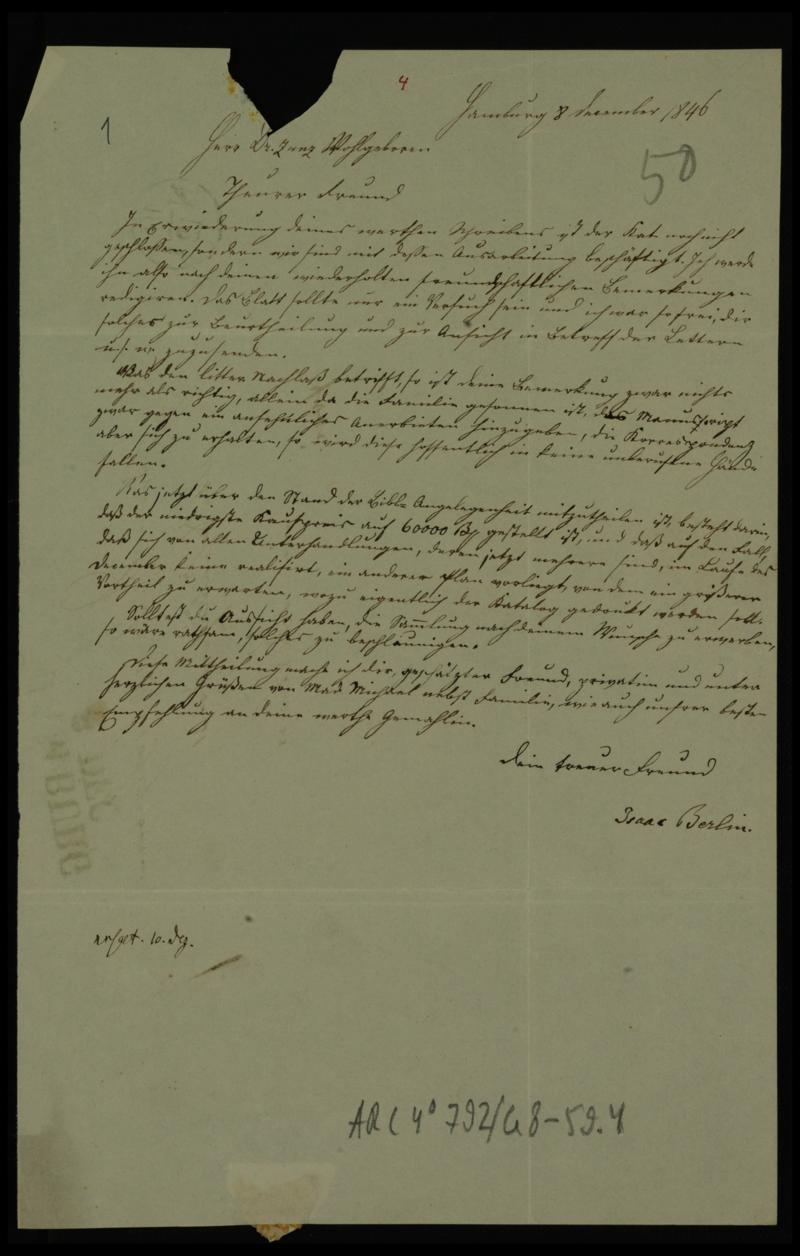 4
1
Hamburg 8 December 1846
50
Herr Dr. Zunz Wohlgeboren
Theurer Freund
In Erwiederung deines werthen Schreibens ist der Kat. noch nicht
geschlossen, sondern wir sind mit dessen Ausarbeitung beschäftigt. Ich werde
ihn also nach deinen wiederholten freundschaftlichen Bemerkungen
redigiren. Das Blatt sollte nur ein Versuch sein und ich war so frei, dir
solches zur Beurtheilung und zur Ansicht in Betreff der Lettern
u. s. w. zuzusenden.
Was den litter Nachlaß betrifft, so ist deine Bemerkung zwar nichts
mehr als richtig, allein da die Familie gesonnen ist, das Manuscript
zwar gegen ein ansehnliches Anerbieten hinzugeben, die Korrespondenz
aber sich zu erhalten, so wird diese hoffentlich in keine unberufene Hände
fallen.
Was jetzt über den Stand der Bibl. Angelegenheit mitzutheilen ist, besteht darin,
daß der niedrigste Kaufpreis auf 60000 gestellt ist, und daß auf den Fall,
daß sich von allen Unterhandlungen, deren jetzt mehrere sind, im Laufe des
December keine realisirt, ein anderer Plan vorliegt, von dem ein größerer
Vortheil zu erwarten, wozu eigentlich der Katalog gedruckt werden soll.
Solltest du Aussicht haben, die Sammlung nach deinem Wunsche zu erwerben,
so wäre rathsam, solches zu beschleunigen.
Diese Mittheilung mache ich dir, geschätzter Freund, privatim und unter
herzlichen Grüßen von Mad Michael nebst Familie, wie auch unsrer besten
Empfehlung an deine werthe Gemahlin.
Dein treuer Freund
Isaac Berlin.
10. Dez.
ARC 4° 792/G8-59.4